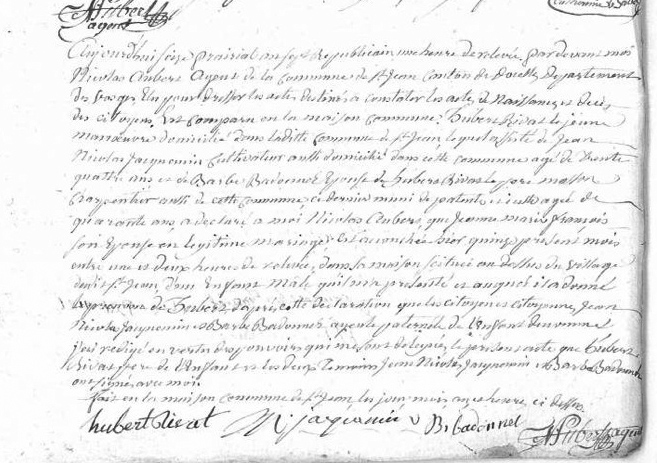 Aubert
agent
Aujourd'hui seize prairial an sept Republicain une heure de relevée, pardevant moi
Nicolas Aubert Agent de la Commune de St Jean Canton de Departement
des Vosges, Elu pour dresser les actes destinés a constater les actes de Naissances et deces
des citoyens, Est comparu en la maison commune, hubert Rivat le jeune
manœuvre domicilié dans laditte Commune de St Jean, lequel assisté de Jean
Nicolas Jacquemin Cultivateur aussi domicilié dans cette commune agé de trente
quatre ans et de Barbe Badonnel Epouse de hubert Rivat le pere
Charpentier aussi de cette Commune, ce dernier muni de patente, icelle agée de
quarante ans, a declaré a moi Nicolas Aubert, que Jeanne marie françois
son Epouse en legitime mariage, est accouchée hier quinze present mois
entre une et deux heures de relevée, dans sa maison scituée au dessus du village
dudit St Jean, d'un Enfant Male qu'il m'a presenté et auquel il a donné
le prenom de hubert d'après cette declaration que les citoyen et citoyenne, Jean
Nicolas Jacquemin et Barbe Badonnel ayeule paternelle de l'enfant
j'ai redigé en vertu des pouvoirs qui me sont delegués, le present acte que hubert
Rivat pere de l'Enfant et les deux temoins Jean Nicolas Jacquemin et Barbe Badonnel
ont signés avec moi
fait en la maison commune de St Jean les jour mois an et heure ci dessus
hubert rivat N jacquemin B badonnel Aubert agent